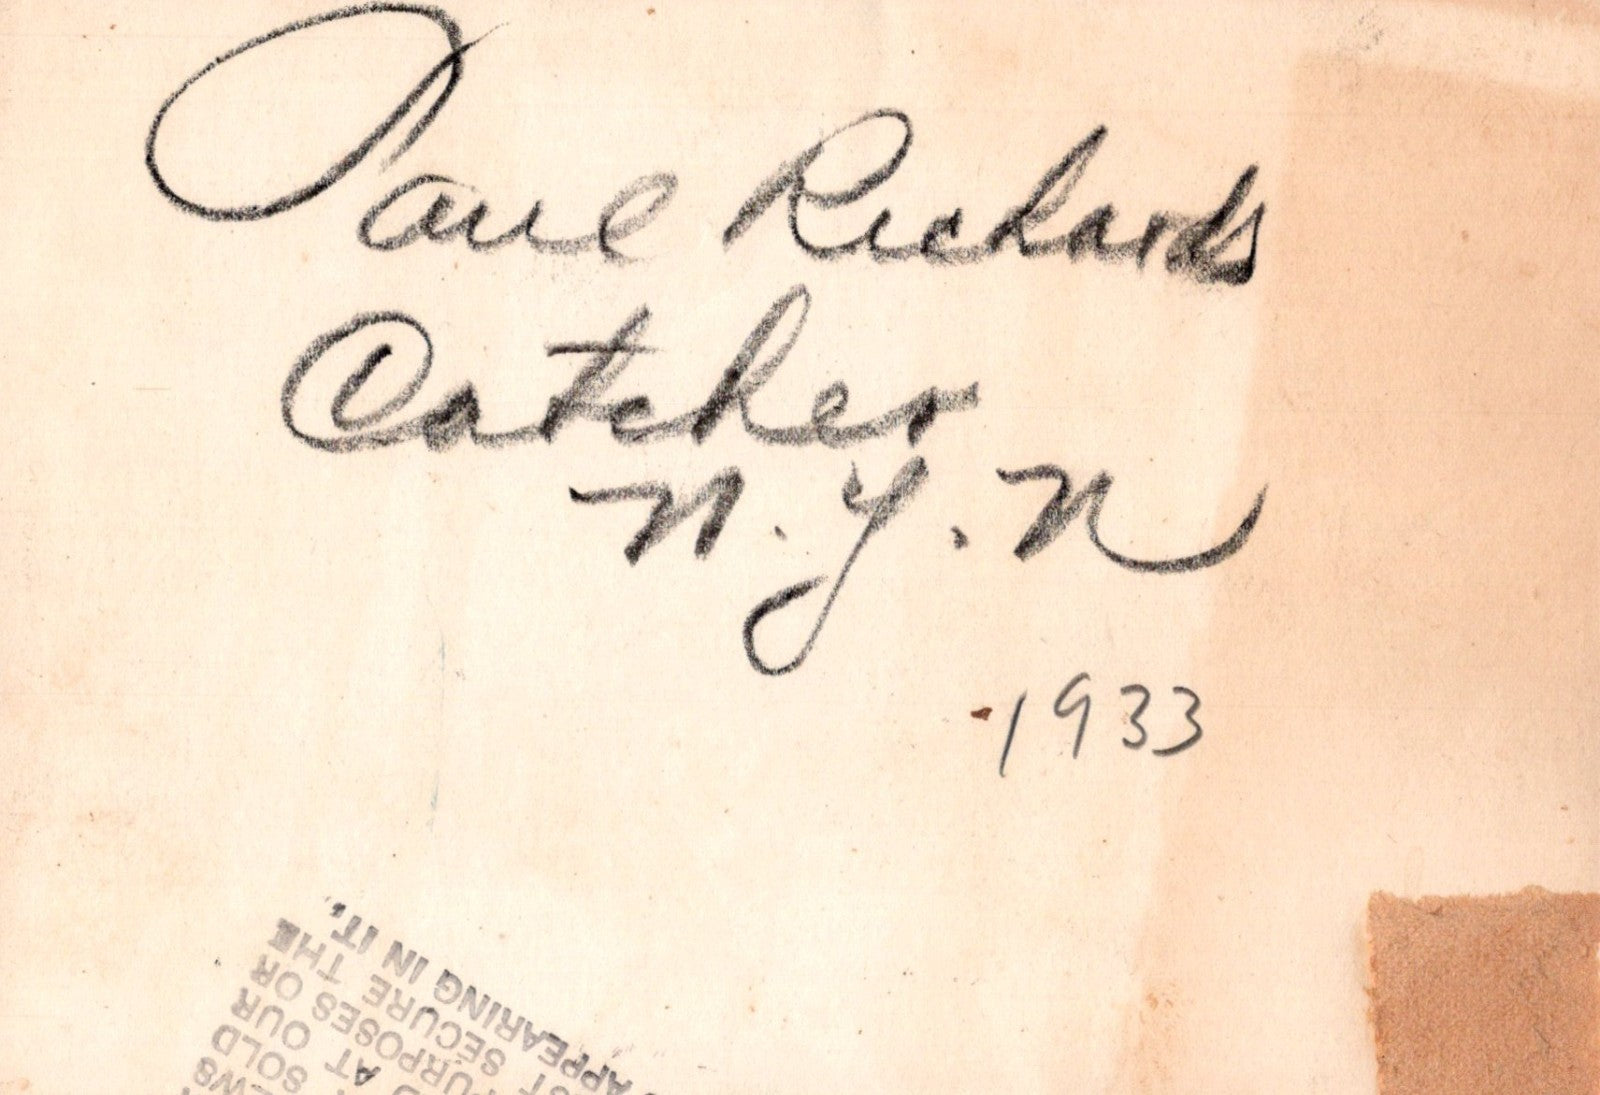 Paul Richards
Catcher
N.Y.N
1933
APPEARING IN IT.
SECURE THE
PURPOSES OR
AT OUR
SOLD